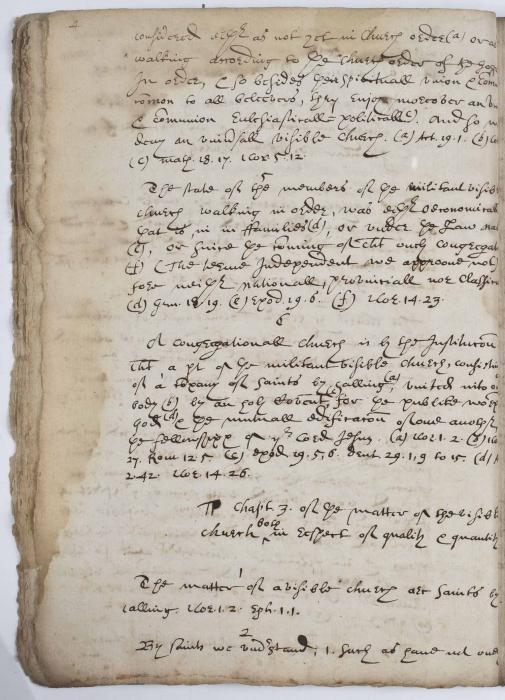 4
considered eythr as not yet in Church order (a) or as
walking according to ye church order of ye gos
In order, & so besides ye spirituall union & com
comon to all beleevers, they enjoy moreover an v
& communion Ecclesiasticall-politicall. And so w
deny an vniversall visible church. (a) Act. 19. 1. (b)
(c) math. 18. 17. 1 Cor. 5. 12.
The state of ye members of ye militant visibl
church walking in order, was eythr oeconomicall
yat is, in families (d), or under ye Law nat
(e), or since ye coming of Cht only congregat
(f) (The terme Independent we approove not)
fore neithr nationall, provinciall nor Classica
(d) gen. 18. 19. (e) exod. 19. 6. (f) 1 Cor. 14. 23.
6
A congregationall church is by the Institution
Cht a pt of ye militant visible church, consistin
of a company of saints by calling (a), united into o
body (b) by an holy Covent, for ye publike wor
god (d) & ye mutuall edification of one anothr
ye fellowshipp of yr Lord Jesus. (a) 1 Cor. 1. 2. (b) 1 Co
27. Rom 12. 5 (c) exod. 19. 5, 6. Deut. 29. 1, 9 to 15. (d) A
2. 42. 1 Cor. 14. 26.
Chapt. 3. of ye matter of the visibl
church both in respect of quality & quantity
1
The matter of a visible church are saints by
calling. 1 Cor. 1. 2. Eph. 1. 1.
2
By saints we vndrstand, 1. such as have not onely